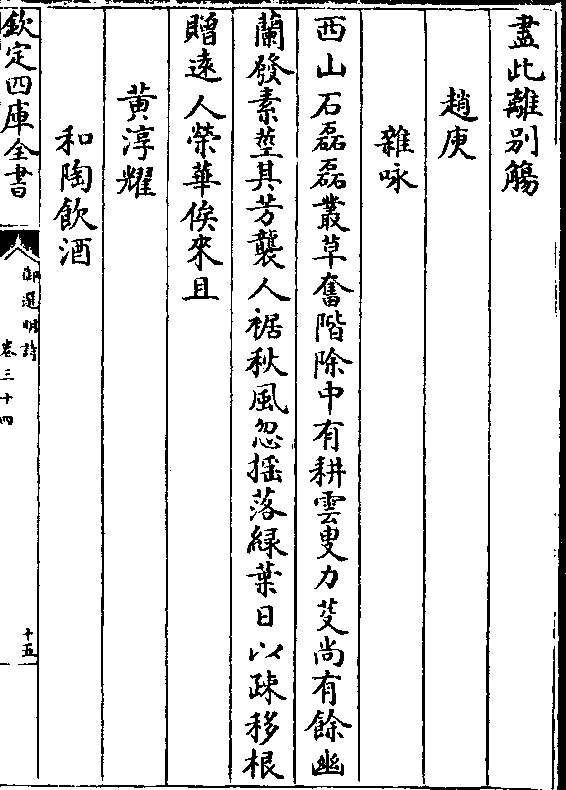 盡此離别觴
趙庚
雜咏
西山石磊磊叢草奮階除中有耕雲叟力芟尚有餘幽
蘭發素莖其芳襲人裾秋風忽摇落緑葉日以疎移根
贈逺人榮華俟來且
黄淳耀
和陶飲酒
欽定四庫全書
御選明詩
卷三十四
十五